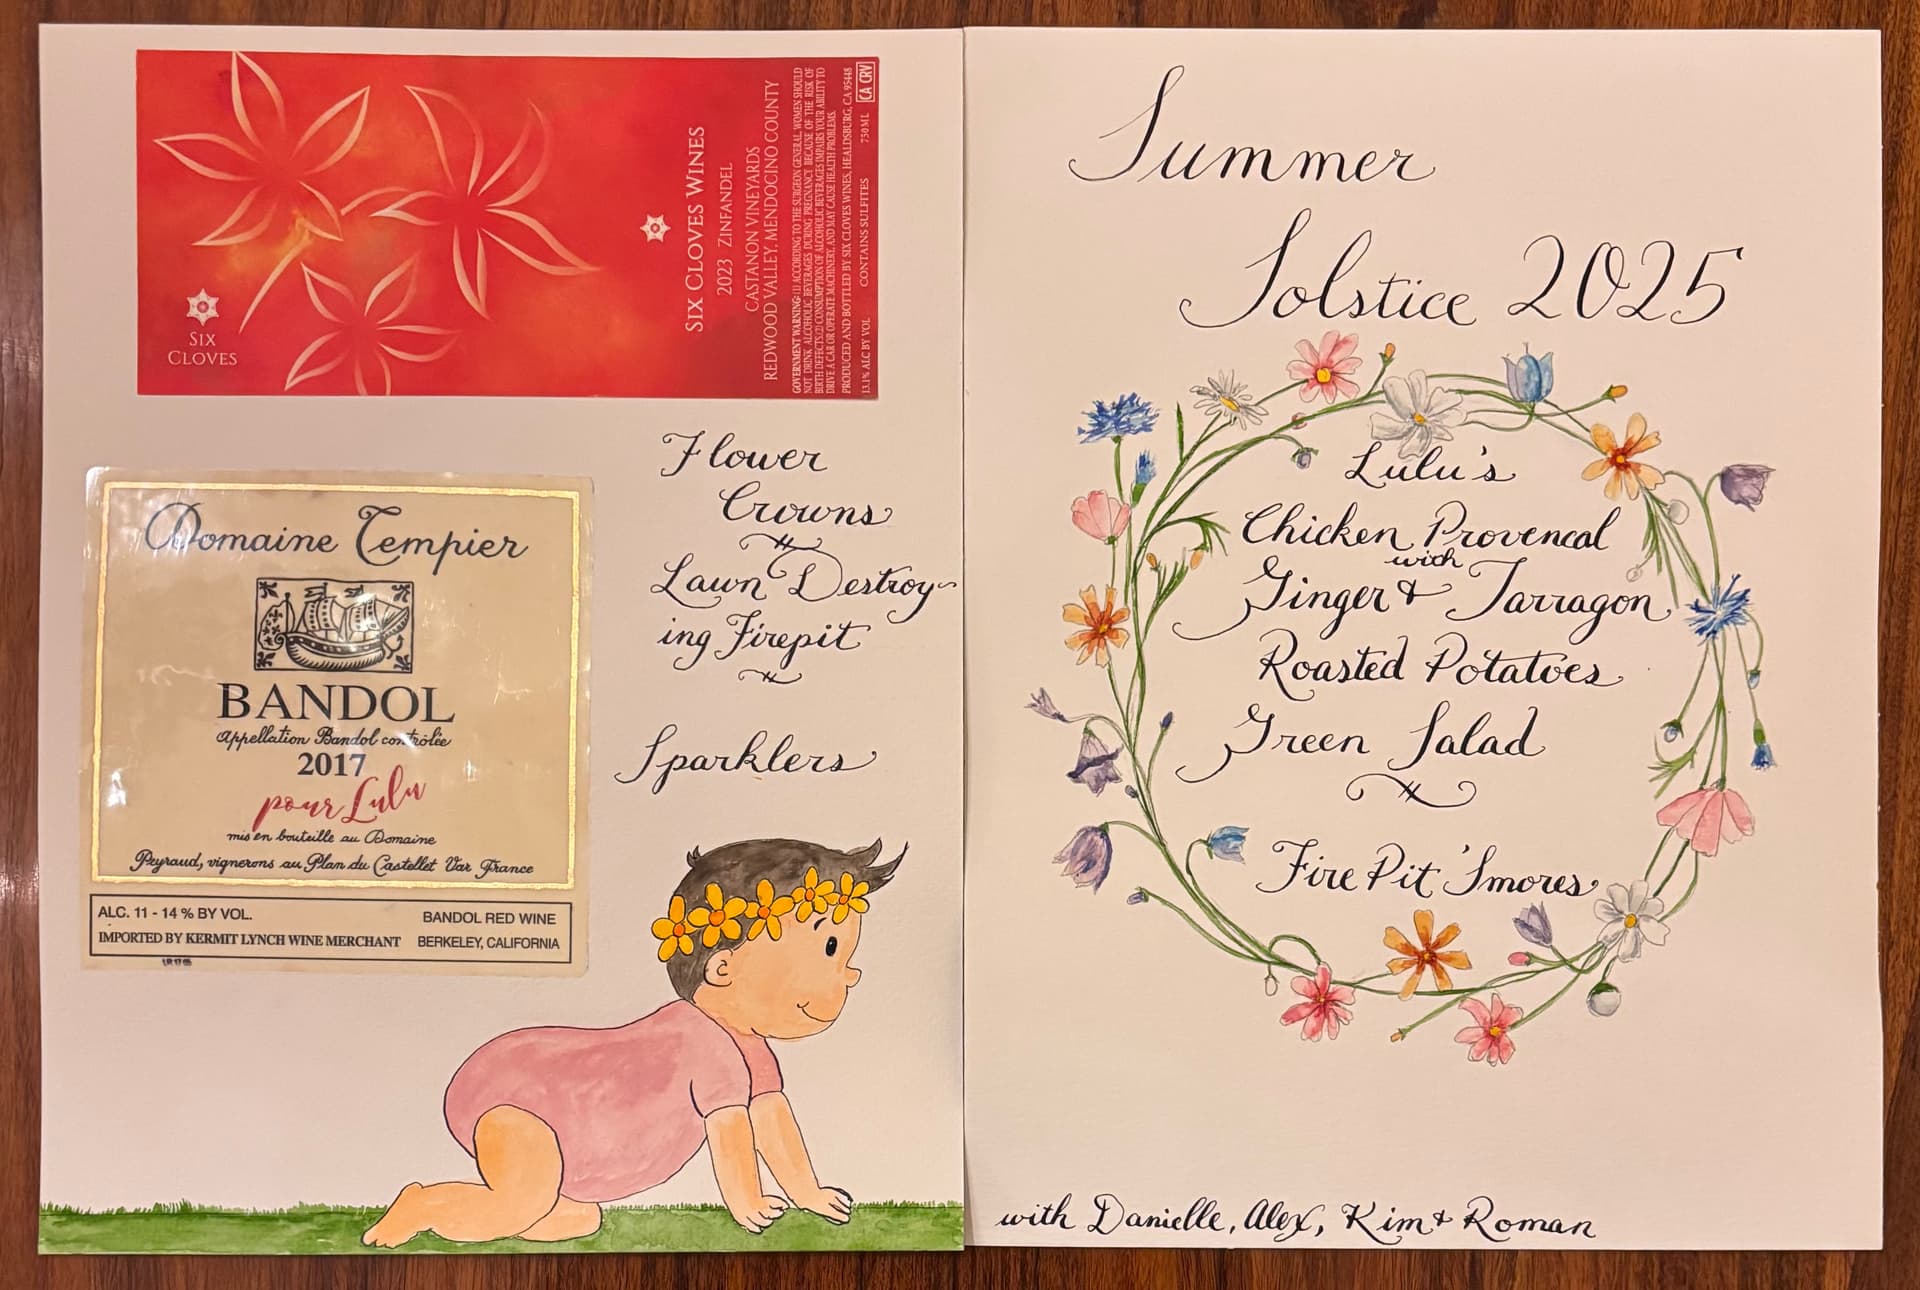 SIX
CLOVES
SIX CLOVES WINES
2023 ZINFANDEL
CASTANON VINEYARDS
REDWOOD VALLEY, MENDOCINO COUNTY
GOVERNMENT WARNING: (1) ACCORDING TO THE SURGEON GENERAL, WOMEN SHOULD
NOT DRINK ALCOHOLIC BEVERAGES DURING PREGNANCY BECAUSE OF THE RISK OF
BIRTH DEFECTS. (2) CONSUMPTION OF ALCOHOLIC BEVERAGES IMPAIRS YOUR ABILITY TO
DRIVE A CAR OR OPERATE MACHINERY, AND MAY CAUSE HEALTH PROBLEMS.
PRODUCED AND BOTTLED BY SIX CLOVES WINES, HEALDSBURG, CA 95448
13.1% ALC BY VOL CONTAINS SULFITES 750 ML CA CRV
Flower
Crowns
Lawn Destroy-
ing Firepit
Sparklers
Domaine Tempier
BANDOL
Appellation Bandol contrôlée
2017
pour Lulu
mis en bouteille au Domaine
Peyraud, vignerons au Plan du Castellet Var France
ALC. 11 - 14 % BY VOL. BANDOL RED WINE
IMPORTED BY KERMIT LYNCH WINE MERCHANT BERKELEY, CALIFORNIA
Summer
Solstice 2025
Lulu's
Chicken Provencal
with
Ginger & Tarragon
Roasted Potatoes
Green Salad
Fire Pit 'Smores
with Danielle, Alex, Kim & Roman